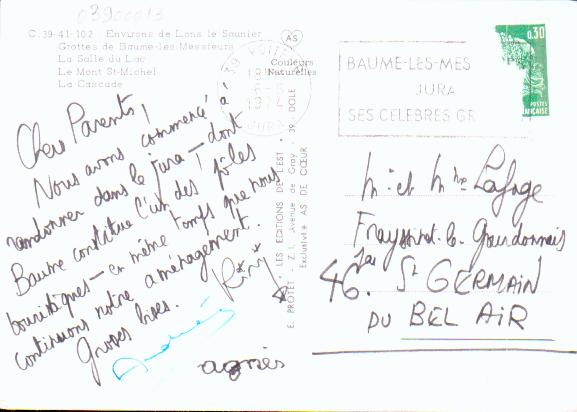 03900013
C.39-41-102 Environs de Lons le Saunier
Grottes de Baume-les-Messieurs
La Salle du Lac
Le Mont St-Michel
La Cascade
AS
Couleurs
Naturelles
39 VOITEUR
1974
JURA
BAUME-LES-MES
JURA
SES CELEBRES GR
0,30
POSTES
Chers Parents,
Nous avons commencé à
randonner dans le jura – dont
Baume constitue l'un des pôles
touristiques – en même temps que nous
continuons notre aménagement.
Grosses bises.
André
agnès
"LES EDITIONS DE L'EST"
E. PROTET - Z.I. Avenue de Gray - 39 - DOLE
Exclusivité AS DE CŒUR
M. et Mme Lafage
Frayssinet-le-Gourdonnais
46. St GERMAIN
DU BEL AIR